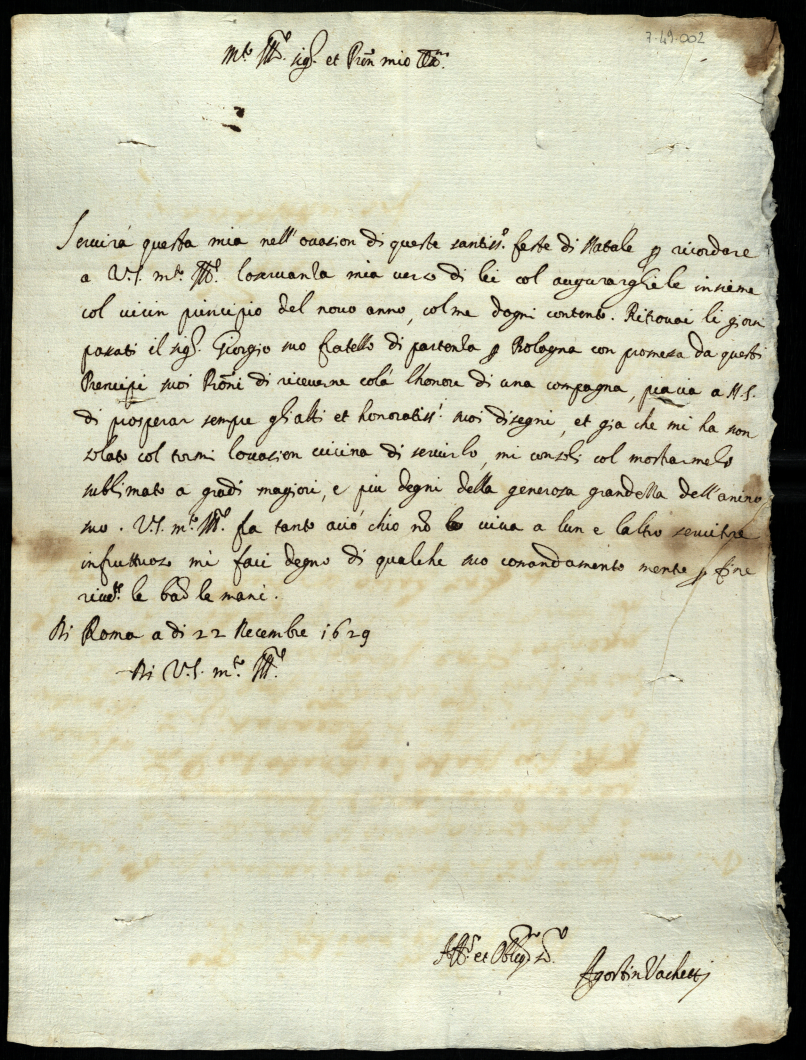 7-49-002
m.to Ill.re sig.r et Pron mio
Seruirà questa mia nell'ocasion di queste santiss.e feste di Natale p ricordare
a V.S. m.to Ill.re loseruanza mia uerso di lei col augurarghele insieme
col uicin principio del nouo anno, colme dogni contento. Ritrouai li giorni
passati il sig.r Giorgio suo fratello di partenza p Bologna con promessa da questi
Prencipi suoi Proni di riceuerne colà lhonore di una compagna, piacia a N.S.
di prosperar sempre gli alti et honoratiss.i suoi disegni, et gia che mi ha scon
solato col tormi locasion uicina di seruirlo, mi consoli col mostarmelo
sublimato a gradi magiori, e piu degni della generosa grandezza dell'animo
suo. V.S. m.to Ill.re fra tanto aciò chio nõ uiua a lun e laltro seruitore
infruttuoso mi faci degno di qualche suo comandamento mente p fine
riued.te le bacio le mani.
Di Roma a di 22 Decembre 1629
Di V.S. m.to Ill.re
Aff.mo et Oblig.mo s.re
Agostin Vachetti